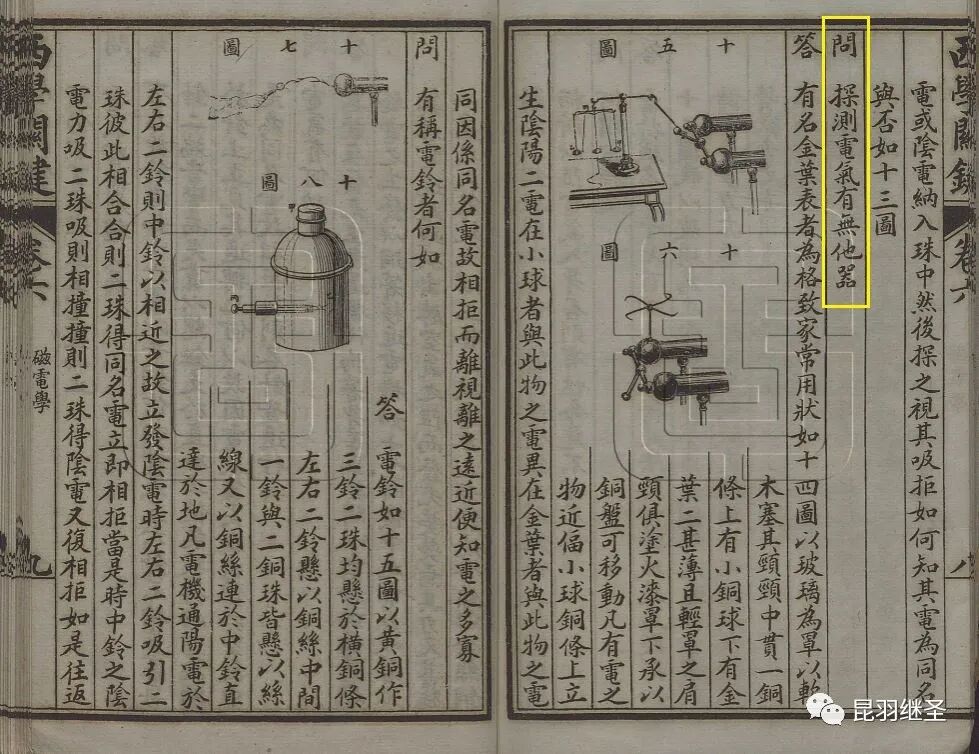 西學關鍵
卷六
八
電或陰電納入珠中然後探之視其吸拒如何知其電為同名
與否如十三圖
問 探測電氣有無他器
答 有名金葉表者為格致家常用狀如十四圖以玻璃為罩以軟
十五圖
十六圖
木塞其頸頸中貫一銅
條上有小銅球下有金
葉二甚薄且輕罩之肩
頸俱塗火漆罩下承以
銅盤可移動凡有電之
物近偪小球銅條上立
生陰陽二電在小球者與此物之電異在金葉者與此物之電
同因係同名電故相拒而離視離之遠近便知電之多寡
問 有稱電鈴者何如
十七圖
十八圖
答 電鈴如十五圖以黃銅作
三鈴二珠均懸於橫銅條
左右二鈴懸以銅絲中間
一鈴與二銅珠皆懸以絲
線又以銅絲連於中鈴直
達於地凡電機通陽電於
左右二鈴則中鈴以相近之故立發陰電時左右二鈴吸引二
珠彼此相合合則二珠得同名電立即相拒當是時中鈴之陰
電力吸二珠吸則相撞撞則二珠得陰電又復相拒如是往返
西學關鍵
卷六
磁電學
九
昆羽继圣